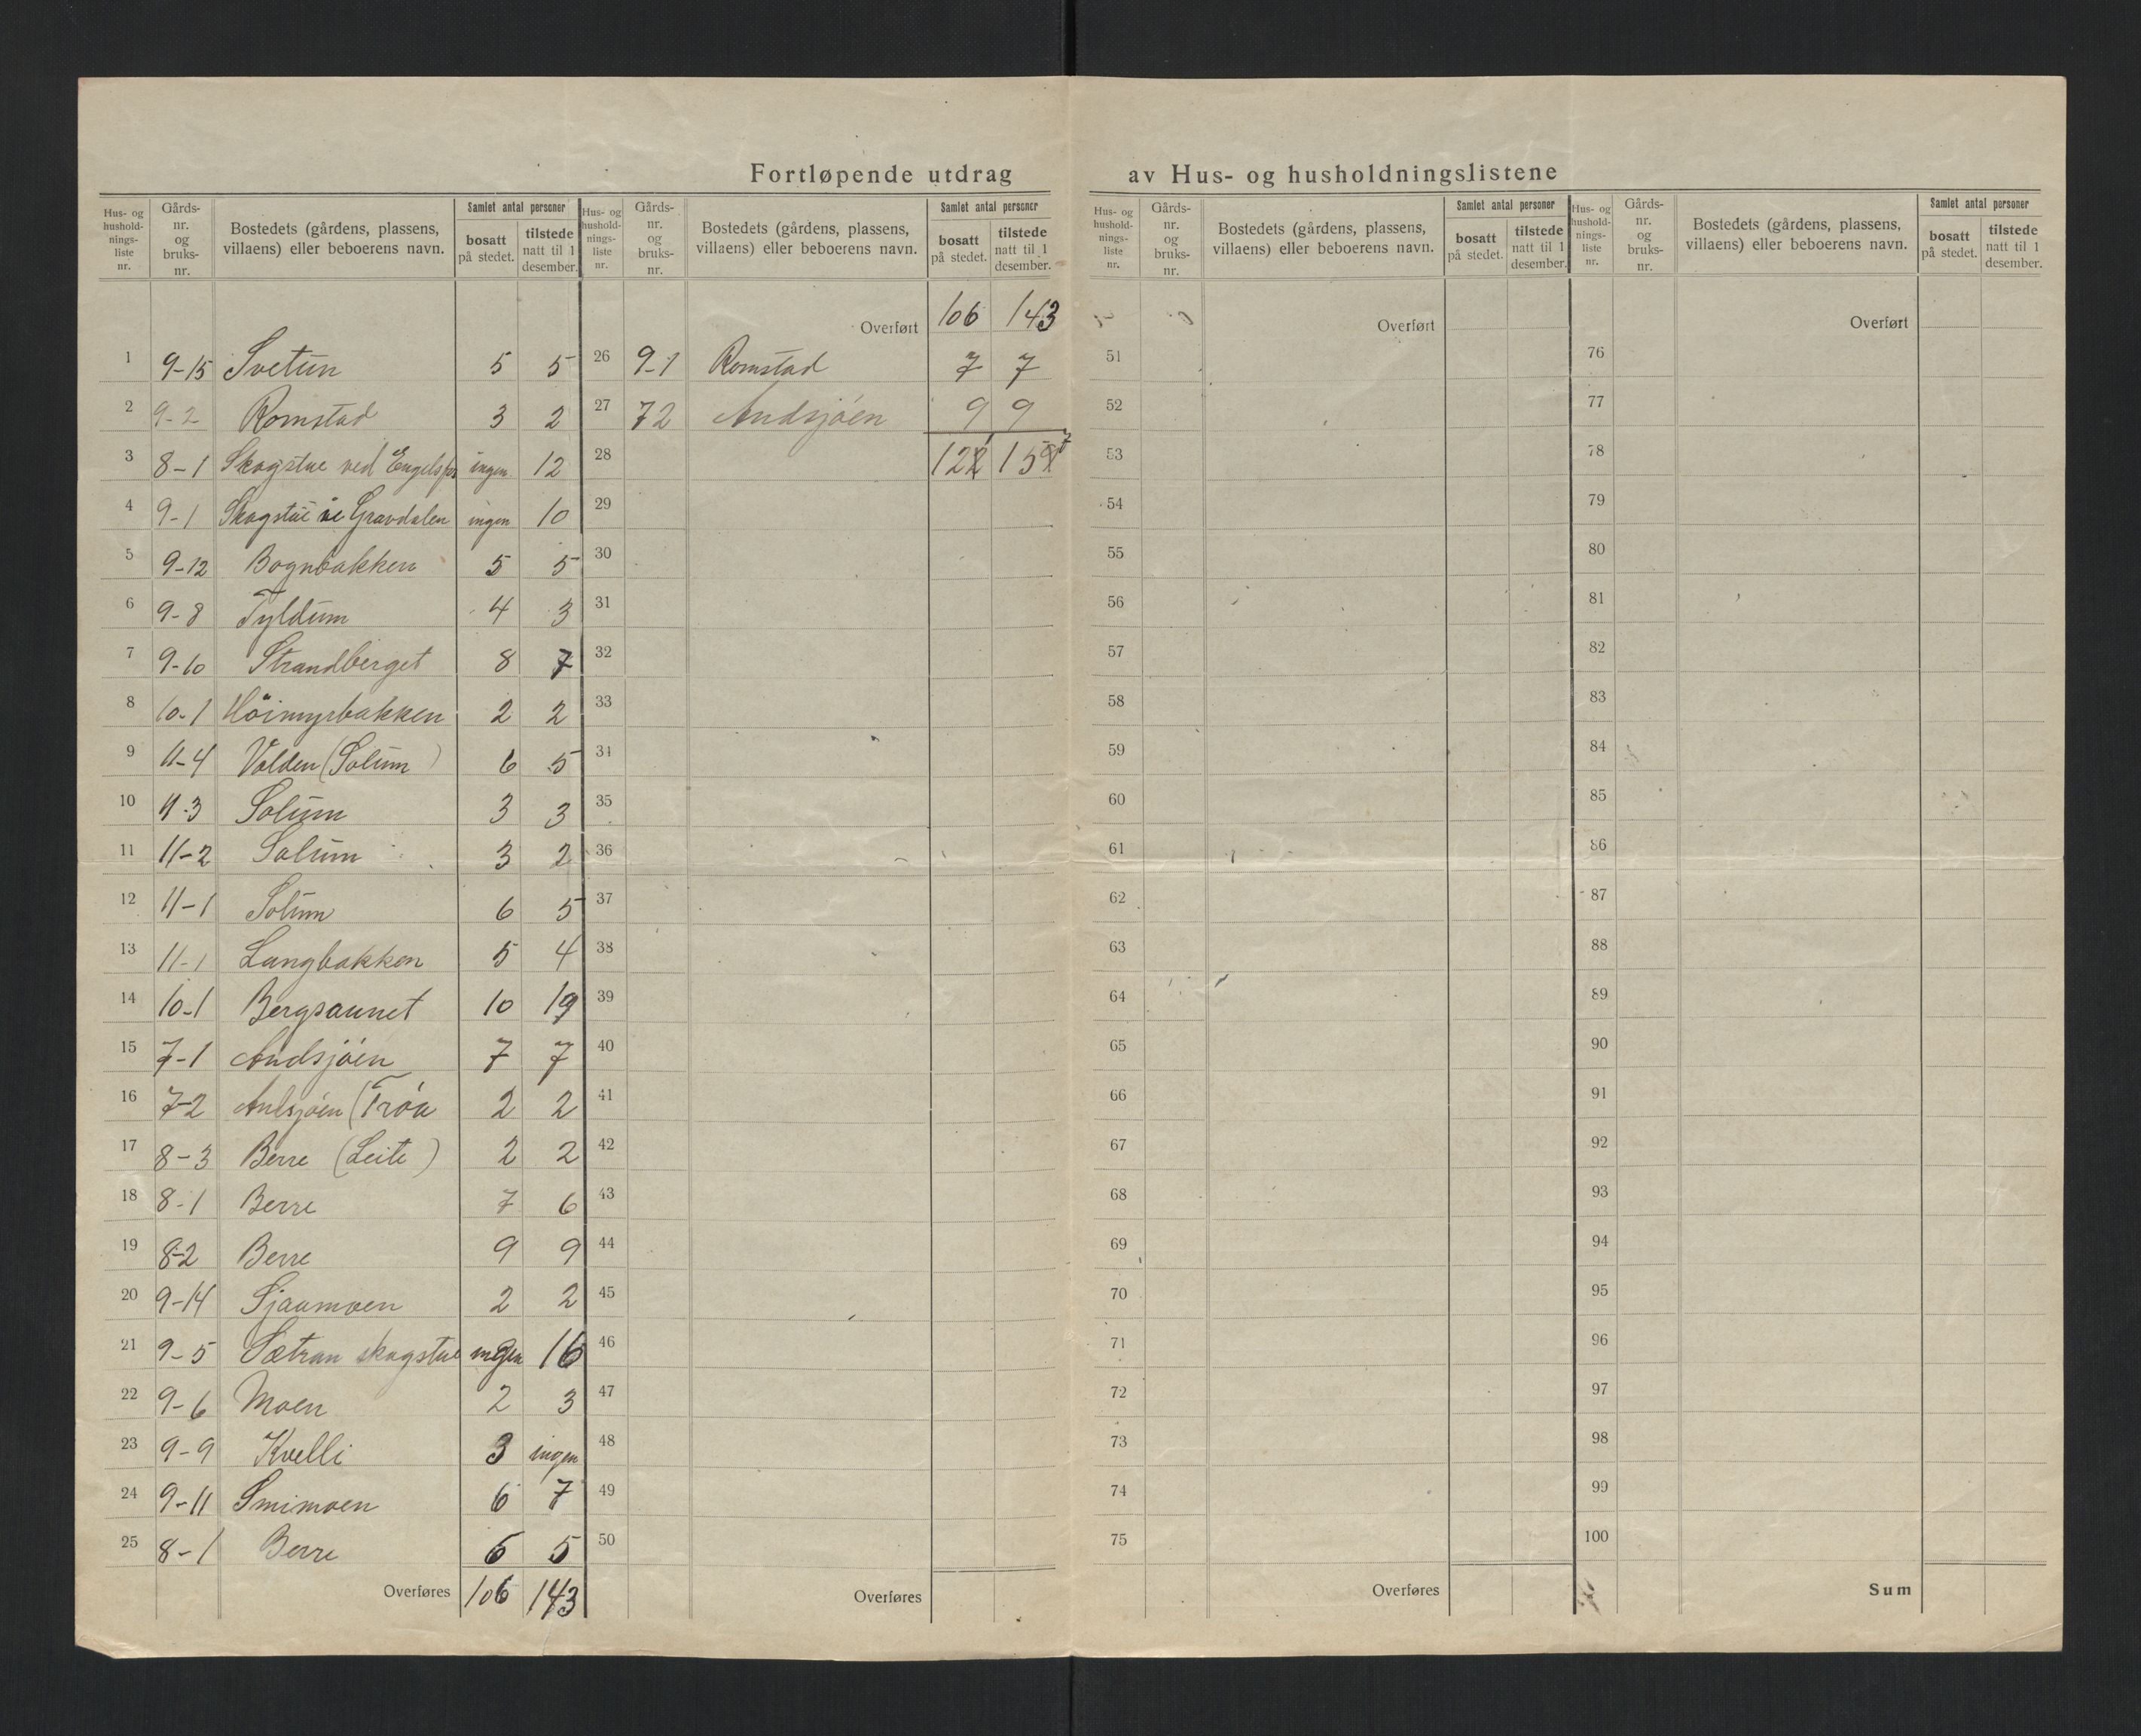 Fortløpende utdrag av Hus- og husholdningslistene
Hus- og hushold- nings- liste nr. Gårds- nr. og bruks- nr. Bostedets (gårdens, plassens, villaens) eller beboerens navn. Samlet antal personer bosatt på stedet. tilstede natt til 1 desember.
1 9-15 Svetun 5 5
2 9-2 Romstad 3 2
3 8-1 Skogstue ved ingen 12
4 9-1 Skogstue ie Gravdalen ingen 10
5 9-12 Bognbakken 5 5
6 9-8 Tyldum 4 3
7 9-10 Strandberget 8 7
8 10-1 Höimyrbakken 2 2
9 11-4 Volden (Solum) 6 5
10 11-3 Solum 3 3
11 11-2 Solum 3 2
12 11-1 Solum 6 5
13 11-1 Langbakken 5 4
14 10-1 Bergsaunet 10 19
15 7-1 Andsjöen 7 7
16 7-2 Andsjöen (Tröa 2 2
17 8-3 Berre (Leite) 2 2
18 8-1 Berre 7 6
19 8-2 Berre 9 9
20 9-14 Sjaamoen 2 2
21 9-5 Sætran skogstue ingen 16
22 9-6 Moen 2 3
23 9-9 Kvelli 3 ingen
24 9-11 Smimoen 6 7
25 8-1 Berre 6 5
Overføres 106 143
Hus- og hushold- nings- liste nr. Gårds- nr. og bruks- nr. Bostedets (gårdens, plassens, villaens) eller beboerens navn. Samlet antal personer bosatt på stedet. tilstede natt til 1 desember.
Overført 106 143
26 9-1 Romstad 7 7
27 72 Andsjöen 9 9
28
29
30
31
32
33
34
35
36
37
38
39
40
41
42
43
44
45
46
47
48
49
50
Overføres
Hus- og hushold- nings- liste nr. Gårds- nr. og bruks- nr. Bostedets (gårdens, plassens, villaens) eller beboerens navn. Samlet antal personer bosatt på stedet. tilstede natt til 1 desember.
Overført
51
52
53
54
55
56
57
58
59
60
61
62
63
64
65
66
67
68
69
70
71
72
73
74
75
Overføres
Hus- og hushold- nings- liste nr. Gårds- nr. og bruks- nr. Bostedets (gårdens, plassens, villaens) eller beboerens navn. Samlet antal personer bosatt på stedet. tilstede natt til 1 desember.
Overført
76
77
78
79
80
81
82
83
84
85
86
87
88
89
90
91
92
93
94
95
96
97
98
99
100
Sum